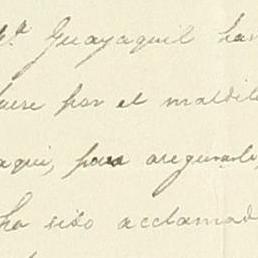 Guayaquil han
por el maldi
aqui, para asegurarlo
ha sido acclamad